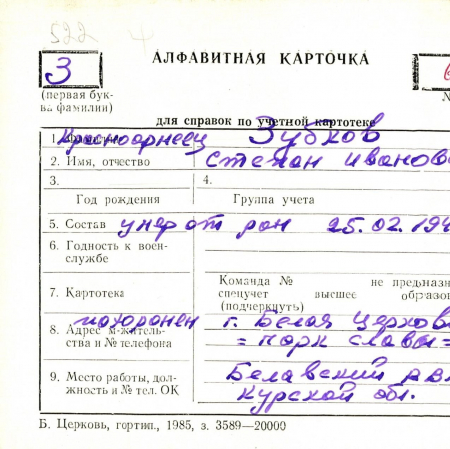 522
АЛФАВИТНАЯ КАРТОЧКА
З
(первая бук-
ва фамилии)
для справок по учетной картотеке
1. Фамилия Красноармеец Зубков
2. Имя, отчество Степан Иванов
3.
4.
Год рождения
Группа учета
5. Состав умер от ран 25.02.194
6. Годность к воен-
службе
7. Картотека
Команда № не предназн
спецучет высшее образо
(подчеркнуть)
похоронен г. Белая Церков
8. Адрес м-житель-
ства и № телефона
=парк славы=
9. Место работы, дол-
жность и № тел. ОК
Белавский
Курской обл.
Б. Церковь, гортип., 1985, з. 3589—20000